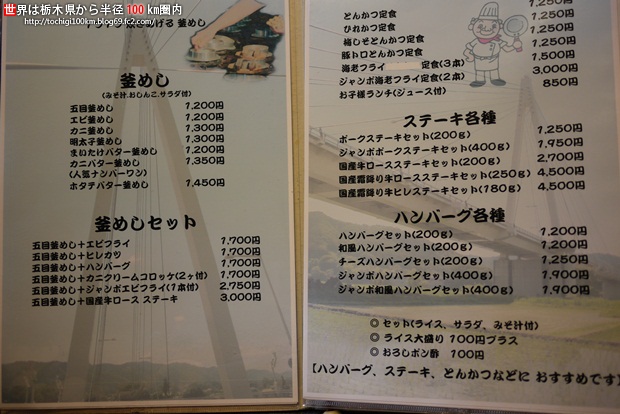 世界は栃木県から半径 100km圏内
http://tochigi100km.blog69.fc2.com/
げる 釜めし
釜めし
(みそ汁、おしんこ、サラダ付)
五目釜めし 1,200円
エビ釜めし 1,200円
カニ釜めし 1,300円
明太子釜めし 1,300円
まいたけバター釜めし 1,200円
カニバター釜めし 1,350円
(人気ナンバーワン)
ホタテバター釜めし 1,450円
釜めしセット
五目釜めし+エビフライ 1,700円
五目釜めし+ヒレカツ 1,700円
五目釜めし+ハンバーグ 1,700円
五目釜めし+カニクリームコロッケ(2ヶ付) 1,700円
五目釜めし+ジャンボエビフライ(1本付) 2,750円
五目釜めし+国産牛ロース ステーキ 3,000円
とんかつ定食
ひれかつ定食 1,250円
梅しそとんかつ定食 1,250円
豚トロとんかつ定食 1,250円
海老フライ 定食(3本) 1,500円
ジャンボ海老フライ定食(2本) 3,000円
お子様ランチ(ジュース付) 850円
ステーキ各種
ポークステーキセット(200g) 1,250円
ジャンボポークステーキセット(400g) 1,950円
国産牛ロースステーキセット(200g) 2,700円
国産霜降り牛ロースステーキセット(250g) 4,500円
国産霜降り牛ヒレステーキセット(180g) 4,500円
ハンバーグ各種
ハンバーグセット(200g) 1,200円
和風ハンバーグセット(200g) 1,200円
チーズハンバーグセット(200g) 1,250円
ジャンボハンバーグセット(400g) 1,900円
ジャンボ和風ハンバーグセット(400g) 1,900円
◎ セット(ライス、サラダ、みそ汁付)
◎ ライス大盛り 100円プラス
◎ おろしポン酢 100円
【ハンバーグ、ステーキ、とんかつなどに おすすめです】